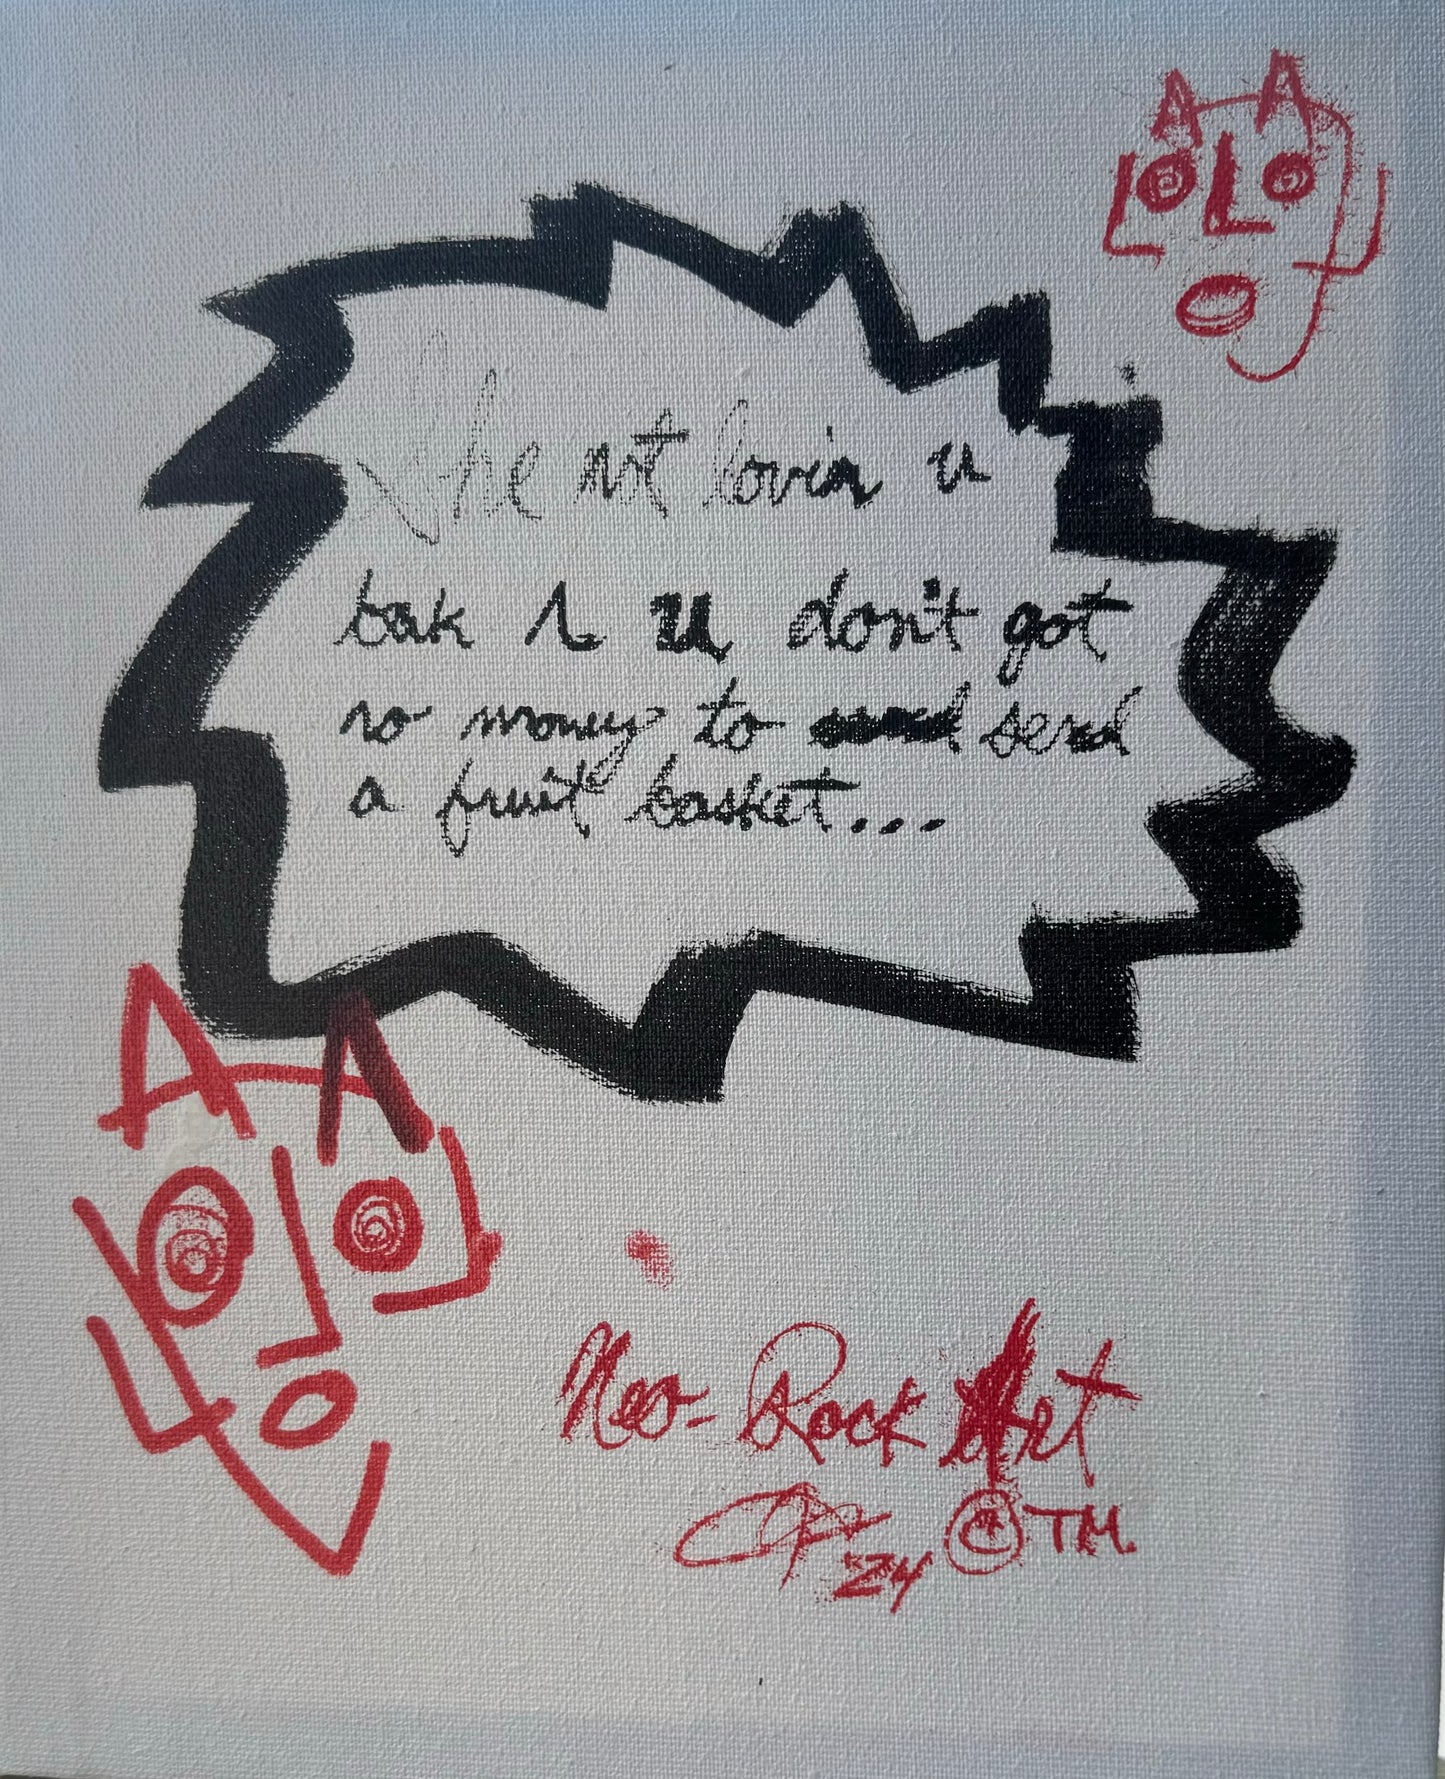 She not lovin u
bak n u don't got
no money to send
a fruit basket...
Neo-Rock Art
'24 © TM.